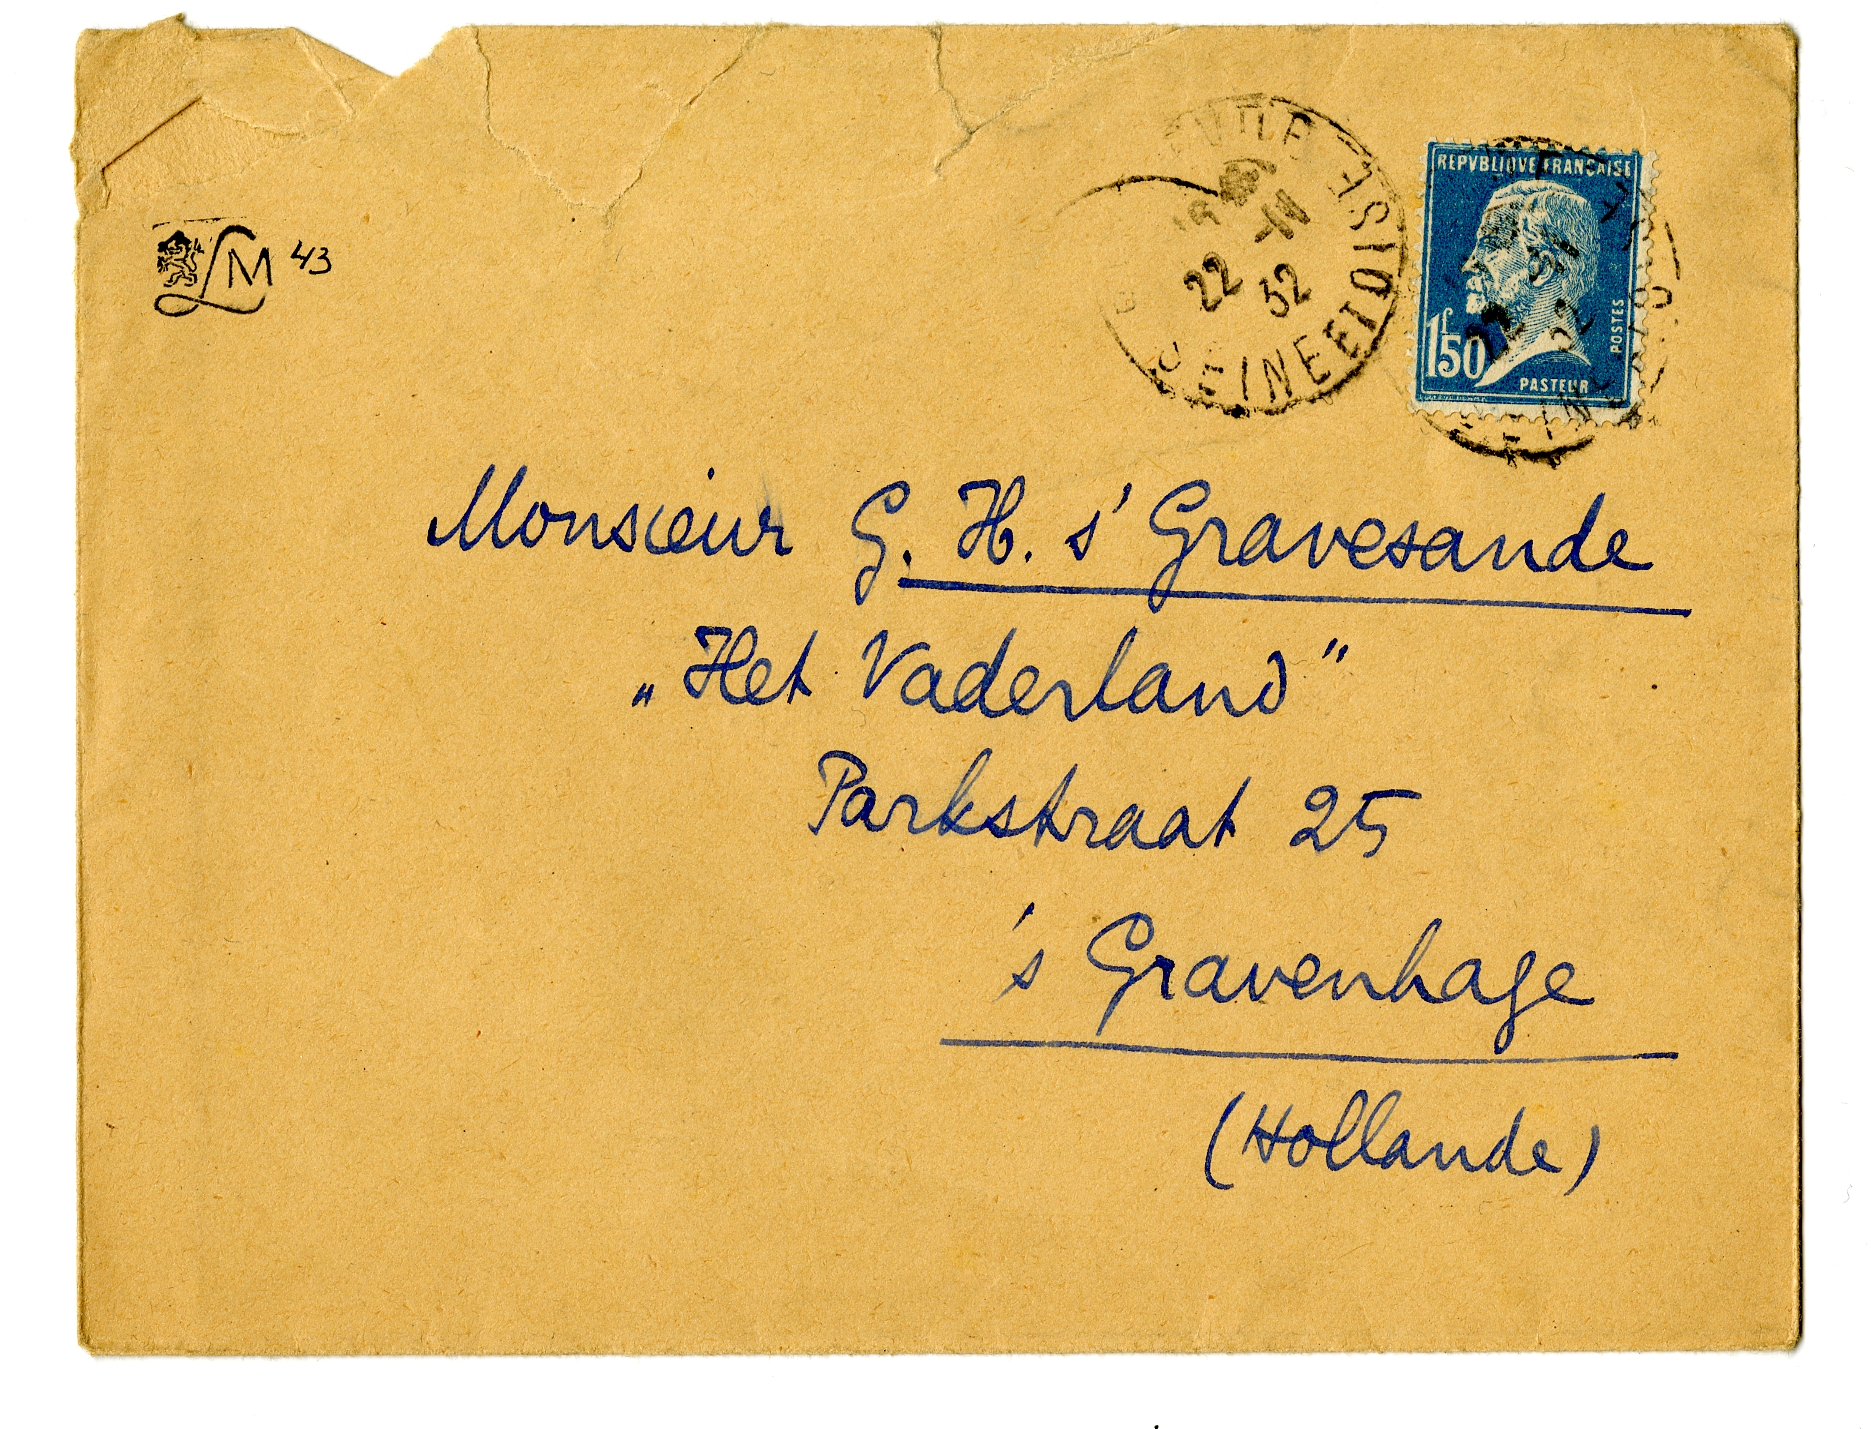 LM 43
22 -IV
32
SEINE ET OISE
REPVBLIQVE FRANCAISE
POSTES
1f50
PASTEUR
22
32
Monsieur G. H. s' Gravesande
„Het Vaderland"
Parkstraat 25
's Gravenhage
(Hollande)